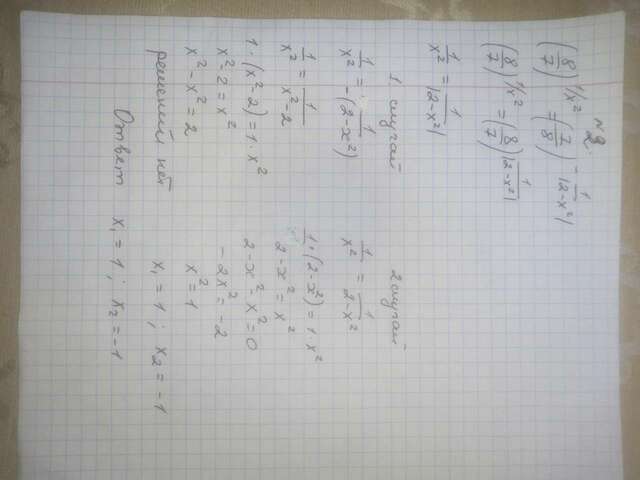 №2.
(8/7)^(1/x²) = (7/8)^(-1/|2-x²|)
(8/7)^(1/x²) = (8/7)^(1/|2-x²|)
1/x² = 1/|2-x²|
1 случай
1/x² = 1/-(2-x²)
1/x² = 1/x²-2
1·(x²-2) = 1·x²
x²-2 = x²
x²-x² = 2
решений нет
2 случай
1/x² = 1/2-x²
1·(2-x²) = 1·x²
2-x² = x²
2-x²-x² = 0
-2x² = -2
x² = 1
x₁ = 1 ; x₂ = -1
Ответ x₁ = 1 ; x₂ = -1